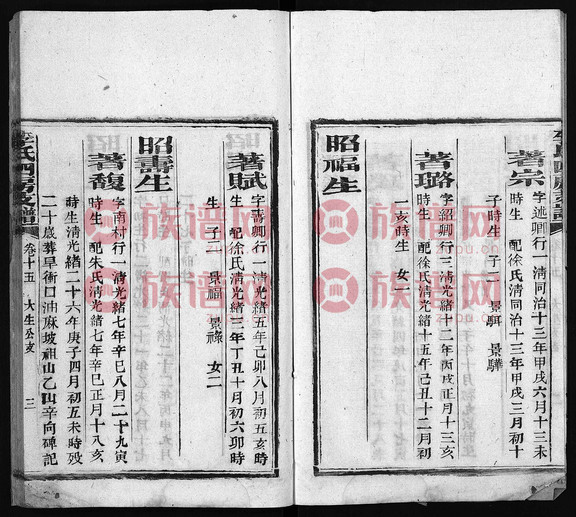 李氏四房支譜 卷十五
著宗
字述卿行一清同治十三年甲戌六月十三未
時生 配徐氏清同治十三年甲戌三月初十
子時生 子二 景騏 景驊
昭福生
著璐
字紹卿行三清光緒十二年丙戌正月十三亥
時生 配徐氏清光緒十五年己丑十二月初
一亥時生 女一
著賦
字壽卿行一清光緒五年己卯八月初五亥時
生 配徐氏清光緒三年丁丑十月初六卯時
生 子二 景福 景祿 女二
昭壽生
著馥
字南村行二清光緒七年辛巳八月二十九寅
時生 配朱氏清光緒七年辛巳正月十八亥
時生清光緒二十六年庚子四月初五未時歿
二十歲葬早衝口油麻坡祖山乙山辛向碑記
李氏四房支譜 卷十五 大生公支 三
族谱网
zupu.cn